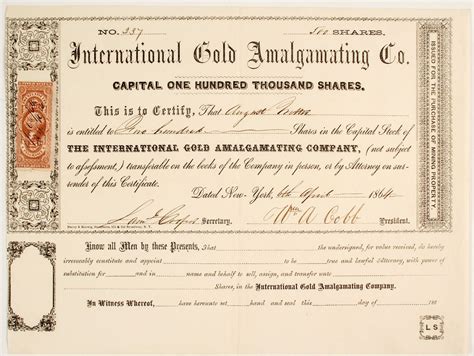 NO. 237 500 SHARES.
International Gold Amalgamating Co.
CAPITAL ONE HUNDRED THOUSAND SHARES.
This is to Certify, That August
is entitled to Five hundred Shares in the Capital Stock of
THE INTERNATIONAL GOLD AMALGAMATING COMPANY, (not subject
to assessment,) transferable on the books of the Company in person, or by Attorney on sur-
render of this Certificate.
Dated New-York, 6th April 1864
Secretary. Wm A Cobb President.
ISSUED FOR THE PURCHASE OF MINING PROPERTY
Know all Men by these Presents, That the undersigned, for value received, do hereby
irrevocably constitute and appoint to be true and lawful Attorney, with power of
substitution for and in name and behalf to sell, assign, and transfer unto
Shares, in the International Gold Amalgamating Company.
In Witness Whereof, have hereunto set hand and seal this day of 186
L S